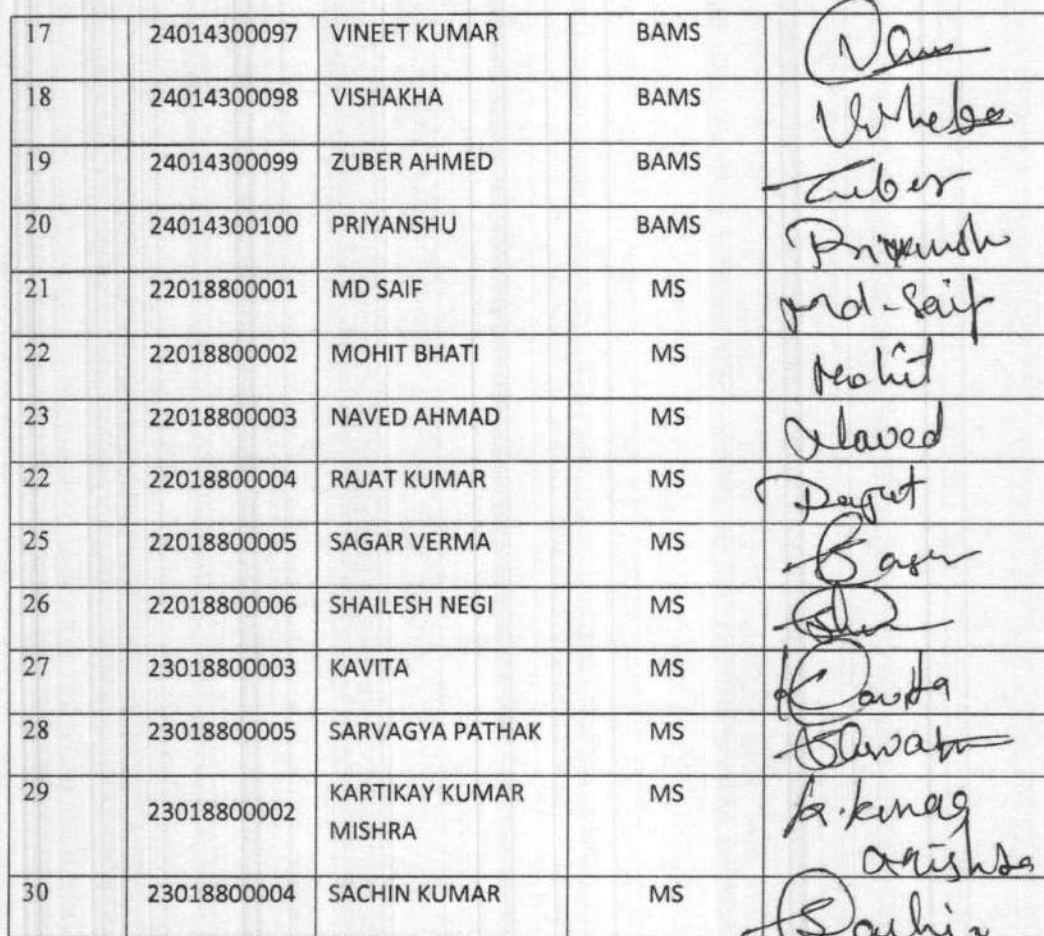 17 24014300097 VINEET KUMAR BAMS
18 24014300098 VISHAKHA BAMS
19 24014300099 ZUBER AHMED BAMS Zuber
20 24014300100 PRIYANSHU BAMS
21 22018800001 MD SAIF MS Md-Saif
22 22018800002 MOHIT BHATI MS Mohit
23 22018800003 NAVED AHMAD MS Naved
22 22018800004 RAJAT KUMAR MS
25 22018800005 SAGAR VERMA MS
26 22018800006 SHAILESH NEGI MS
27 23018800003 KAVITA MS Kavita
28 23018800005 SARVAGYA PATHAK MS
29 23018800002 KARTIKAY KUMAR MS
MISHRA
30 23018800004 SACHIN KUMAR MS Sachin